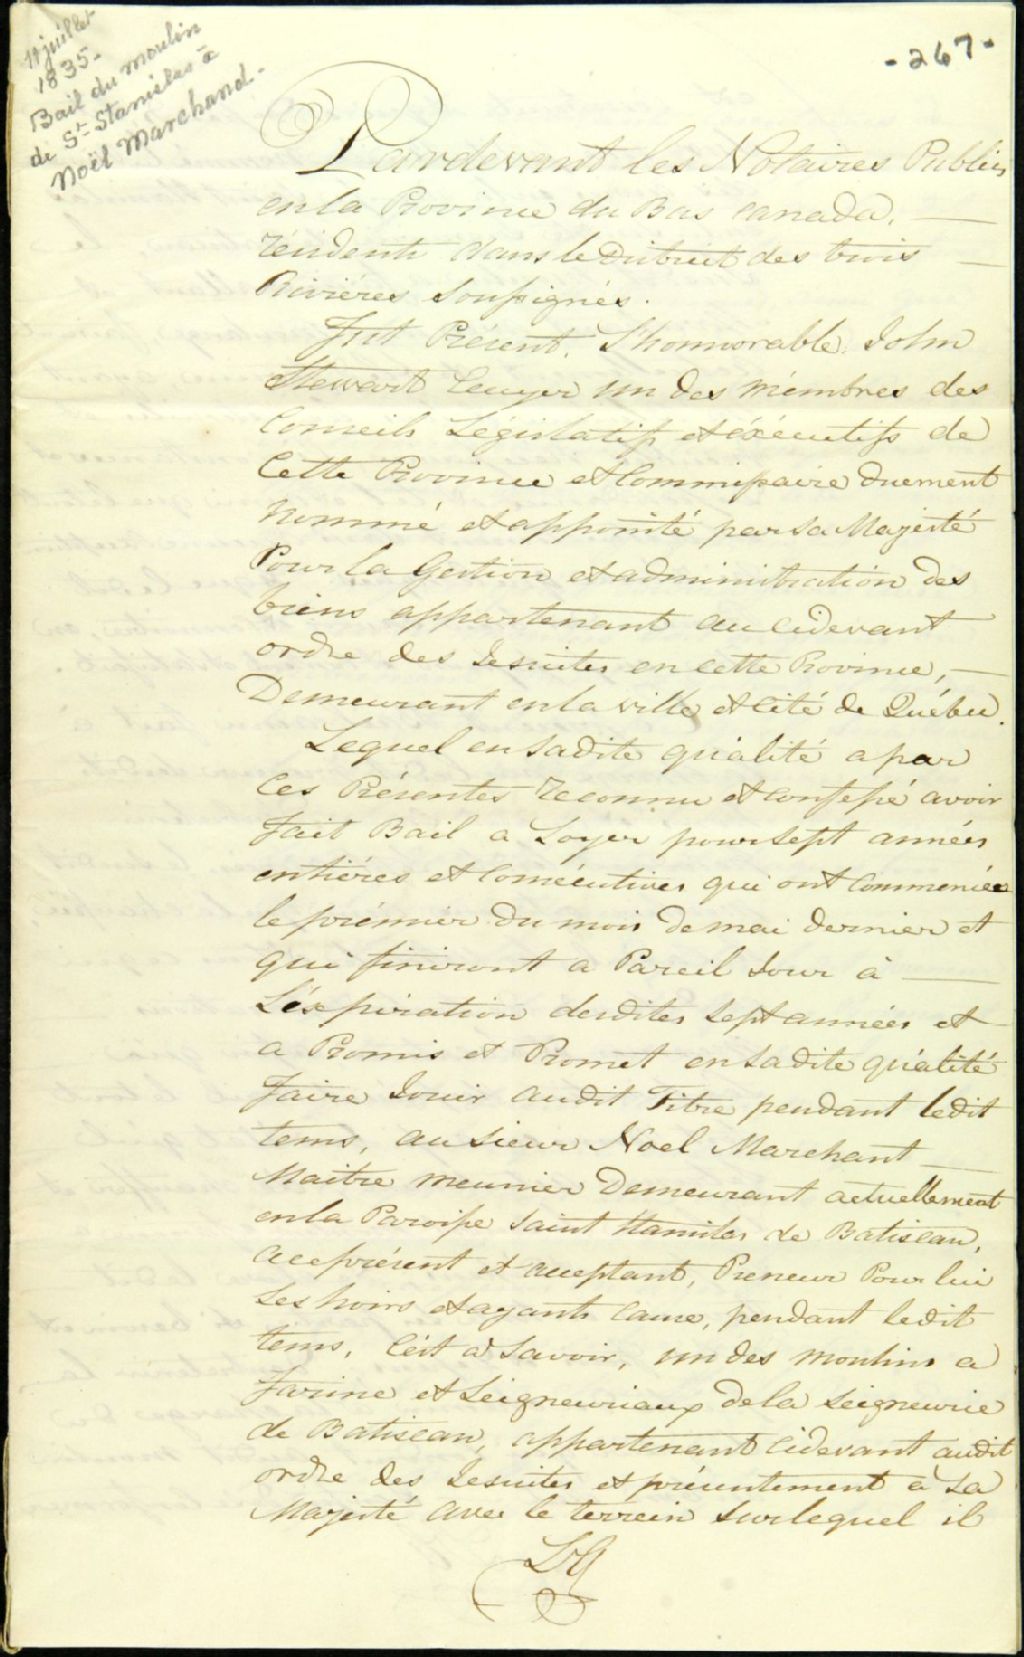 11 juillet
1835.
Bail du moulin
de St Stanislas à
Noël Marchand.
- 267 -
Pardevant les Notaires Publics
en la Province du Bas Canada,
résidents dans le District des trois
Rivières Soussignés.
Fut Présent, L'honnorable John
Stewart Ecuyer un des mémbres des
Conseils Législatifs et éxécutifs de
Cette Province et Commissaire duement
Nommé et appointé par Sa Majesté
Pour la Gestion et administration des
biens appartenant au cidevant
ordre des Jesuites en cette Province,
Demeurant en la ville et Cité de Québec.
Lequel en Sadite qualité a par
Ces Présentes reconnu et confessé avoir
fait Bail a Loyer pour Sept années
entiéres et Consécutives qui ont Commencées
le prémier du mois de mai dernier et
qui finiront a Pareil Jour à
L'éxpiration desdites Sept années et
a Promis et Promet en Sadite qualité
faire Jouir audit Titre pendant ledit
tems, au Sieur Noel Marchant
Maitre meunier Demeurant actuellement
en la Paroisse Saint Stanislas de Batiscan,
a ce présent et acceptant, Preneur Pour lui
Ses hoirs et ayants Cause, pendant ledit
tems, C'est à Savoir, un des moulins a
farine et Seigneuriaux de la Seigneurie
de Batiscan, appartenant cidevant audit
ordre des Jesuites et présentement à Sa
Majesté avec le terrein Sur lequel il